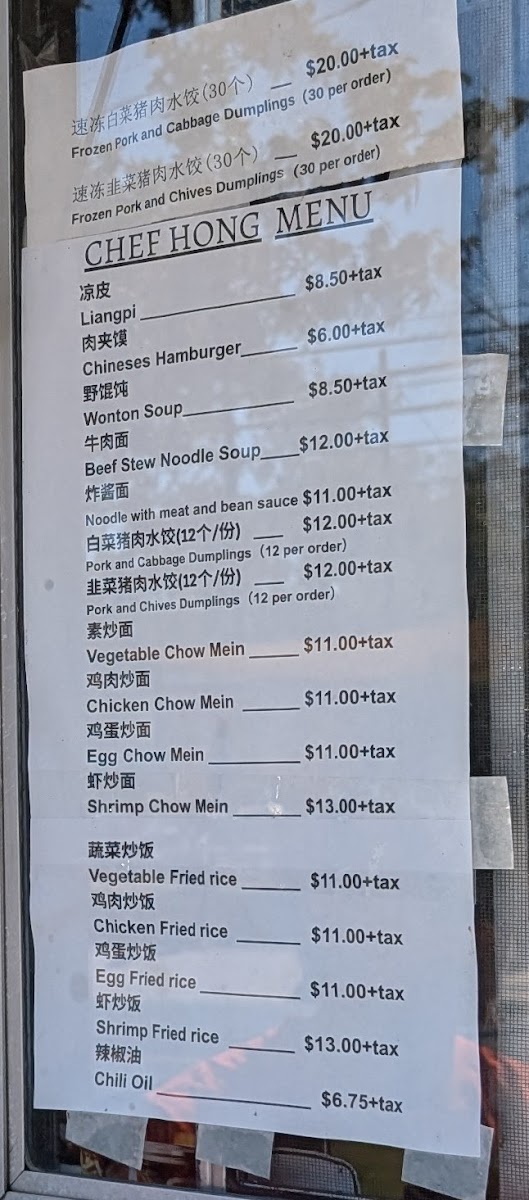 速冻白菜猪肉水饺(30个) — $20.00+tax
Frozen Pork and Cabbage Dumplings (30 per order)
速冻韭菜猪肉水饺(30个) — $20.00+tax
Frozen Pork and Chives Dumplings (30 per order)
CHEF HONG MENU
凉皮
Liangpi $8.50+tax
肉夹馍
Chineses Hamburger $6.00+tax
野馄饨
Wonton Soup $8.50+tax
牛肉面
Beef Stew Noodle Soup $12.00+tax
炸酱面
Noodle with meat and bean sauce $11.00+tax
白菜猪肉水饺(12个/份) $12.00+tax
Pork and Cabbage Dumplings (12 per order)
韭菜猪肉水饺(12个/份) $12.00+tax
Pork and Chives Dumplings (12 per order)
素炒面
Vegetable Chow Mein $11.00+tax
鸡肉炒面
Chicken Chow Mein $11.00+tax
鸡蛋炒面
Egg Chow Mein $11.00+tax
虾炒面
Shrimp Chow Mein $13.00+tax
蔬菜炒饭
Vegetable Fried rice $11.00+tax
鸡肉炒饭
Chicken Fried rice $11.00+tax
鸡蛋炒饭
Egg Fried rice $11.00+tax
虾炒饭
Shrimp Fried rice $13.00+tax
辣椒油
Chili Oil $6.75+tax